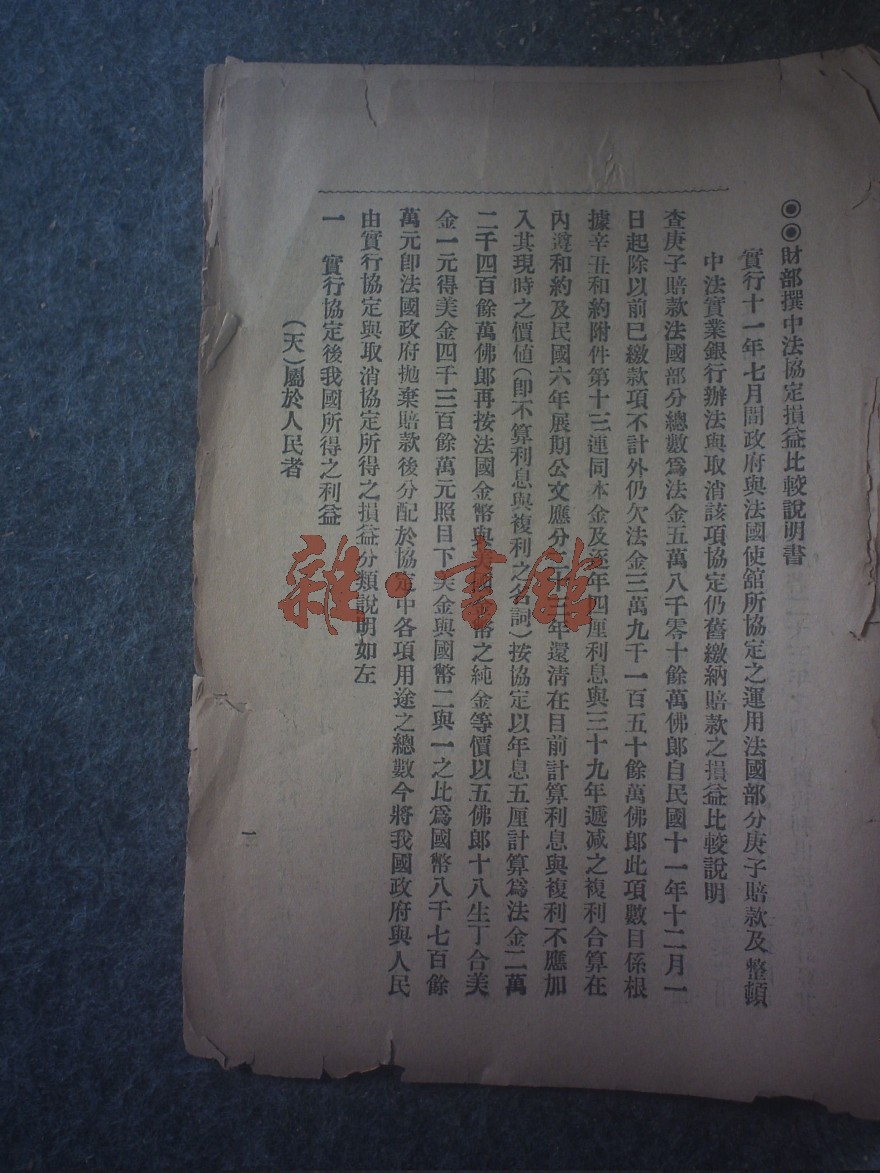 ◉◉財部撰中法協定損益比較說明書
實行十一年七月間政府與法國使館所協定之運用法國部分庚子賠款及整頓
中法實業銀行辦法與取消該項協定仍舊繳納賠款之損益比較說明
查庚子賠款法國部分總數爲法金五萬八千零十餘萬佛郎自民國十一年十二月一
日起除以前已繳款項不計外仍欠法金三萬九千一百五十餘萬佛郎此項數目係根
據辛丑和約附件第十三連同本金及逐年四厘利息與三十九年遞減之複利合算在
內遵和約及民國六年展期公文應分二十三年還清在目前計算利息與複利不應加
入其現時之價値(卽不算利息與複利之名詞)按協定以年息五厘計算爲法金二萬
二千四百餘萬佛郎再按法國金幣與美國金幣之純金等價以五佛郎十八生丁合美
金一元得美金四千三百餘萬元照目下美金與國幣二與一之比爲國幣八千七百餘
萬元卽法國政府拋棄賠款後分配於協定中各項用途之總數今將我國政府與人民
由實行協定與取消協定所得之損益分類說明如左
一 實行協定後我國所得之利益
(天)屬於人民者
一
雜·書館